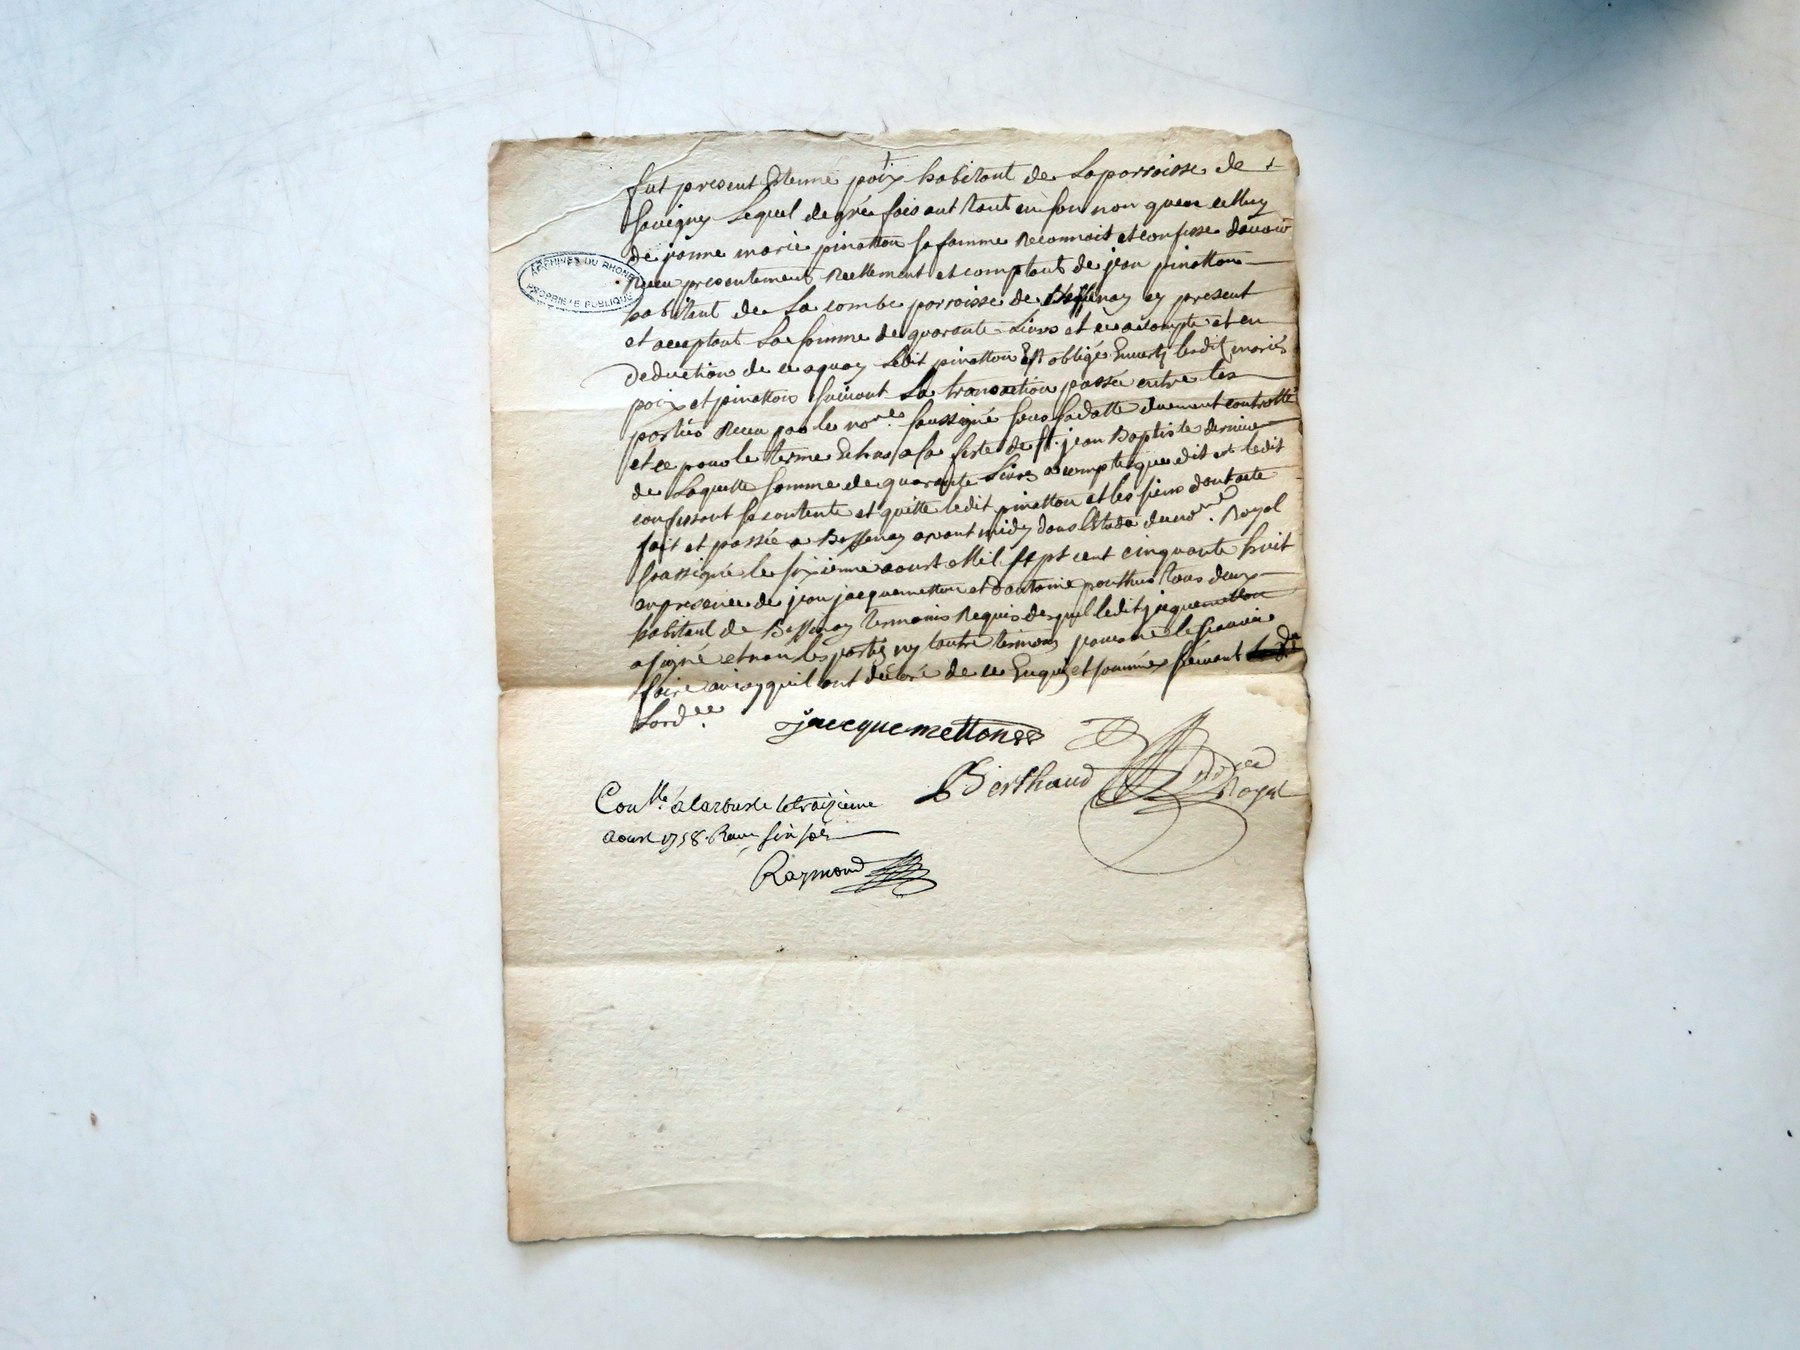 fut present Etienne poix habitant de La parroisse de
Savigny Lequel de gré faisant tant en son nom quen celluy
de janne marie pinatton sa famme Reconnait et confesse davoir
ARCHIVES DU RHONE
PROPRIETE PUBLIQUE
Receu presentement Reellement et comptant de jean pinatton
habitant de La combe parroisse de Bessenay cy present
et aceptant La somme de quarante Livres et ce acompte et en
deduction de ce aquoy Ledit pinatton Est obligé Envers lesdit mariés
poix et pinatton suivant La transaction passée entre les
parties Receu par le no.re soussigné sous sa datte duement controllé
et ce pour le terme Echus a la feste de st. jean Baptiste derniere
de Laquelle somme de quarante Livres acompte que dit est ledit
confessant se contente et quitte ledit pinatton et les siens dont acte
fait et passé a Bessenay avant midy dans Lestude du no.re Royal
soussigné le sixieme aoust Mil sept cent cinquante huit
en présence de jean jacquemetton et dantoine pouthus tous deux
habitant de Bessenay temoins Requis desquel ledit jacquemetton
a signé et non les parties ny lautre temoin pour ne le scavoir
faire ainsy quil ont déclaré de ce Enquis et sommés suivant
Lord.ce
jacquemetton
Berthaud no.re Royal
Con.llé à larbresle le traizieme
Aoust 1758. Receu six sols
Raymond